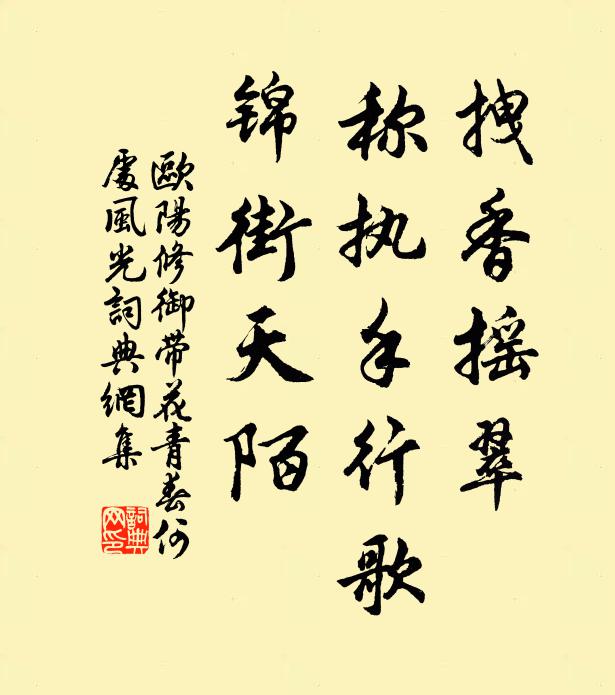 拽香摇翠
称执手行歌
锦街天陌
歐陽修御带花青春何
處風光詞典網集
詞典网印